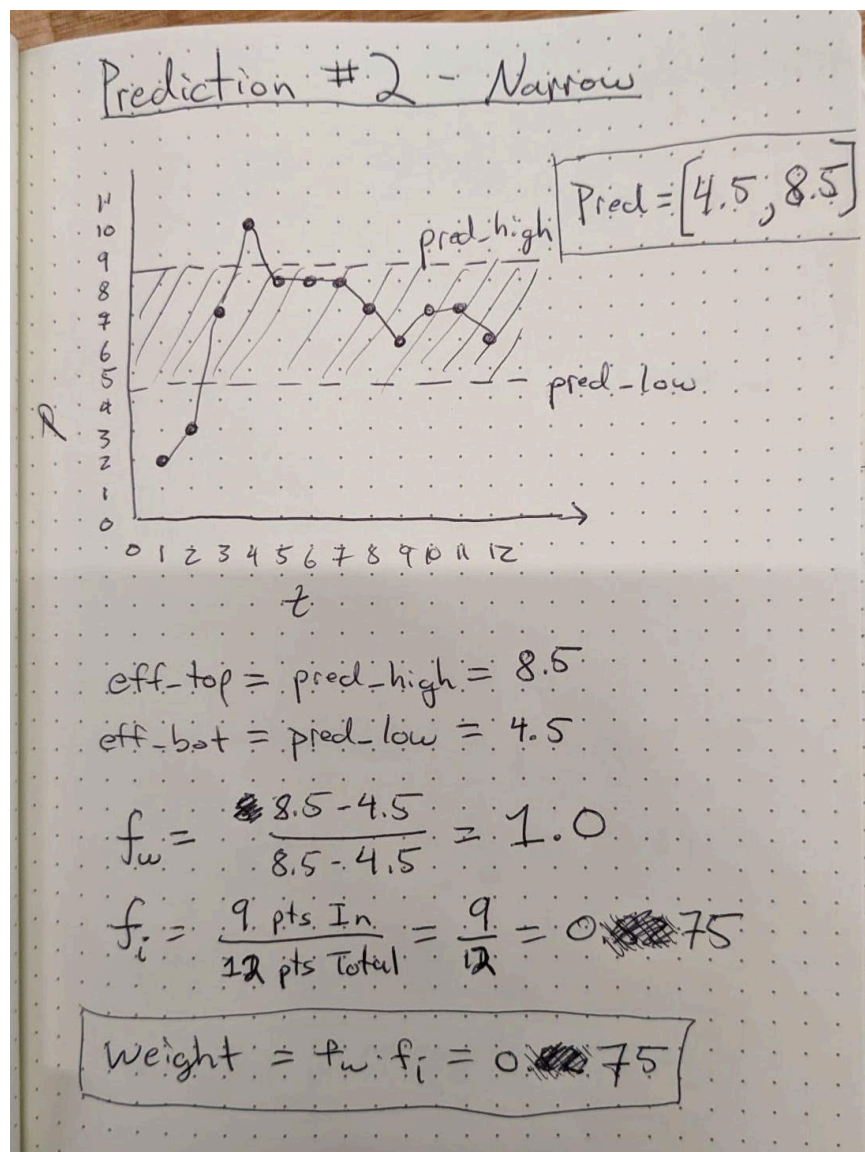 Prediction #2 - Narrow
Pred = [4.5, 8.5]
11
10
9
8
7
6
5
4
3
2
1
0
P
pred_high
pred_low
0 1 2 3 4 5 6 7 8 9 10 11 12
t
eff_top = pred_high = 8.5
eff_bot = pred_low = 4.5
fw = 8.5-4.5 / 8.5-4.5 = 1.0
fi = 9 pts In / 12 pts Total = 9/12 = 0.75
Weight = fw · fi = 0.75